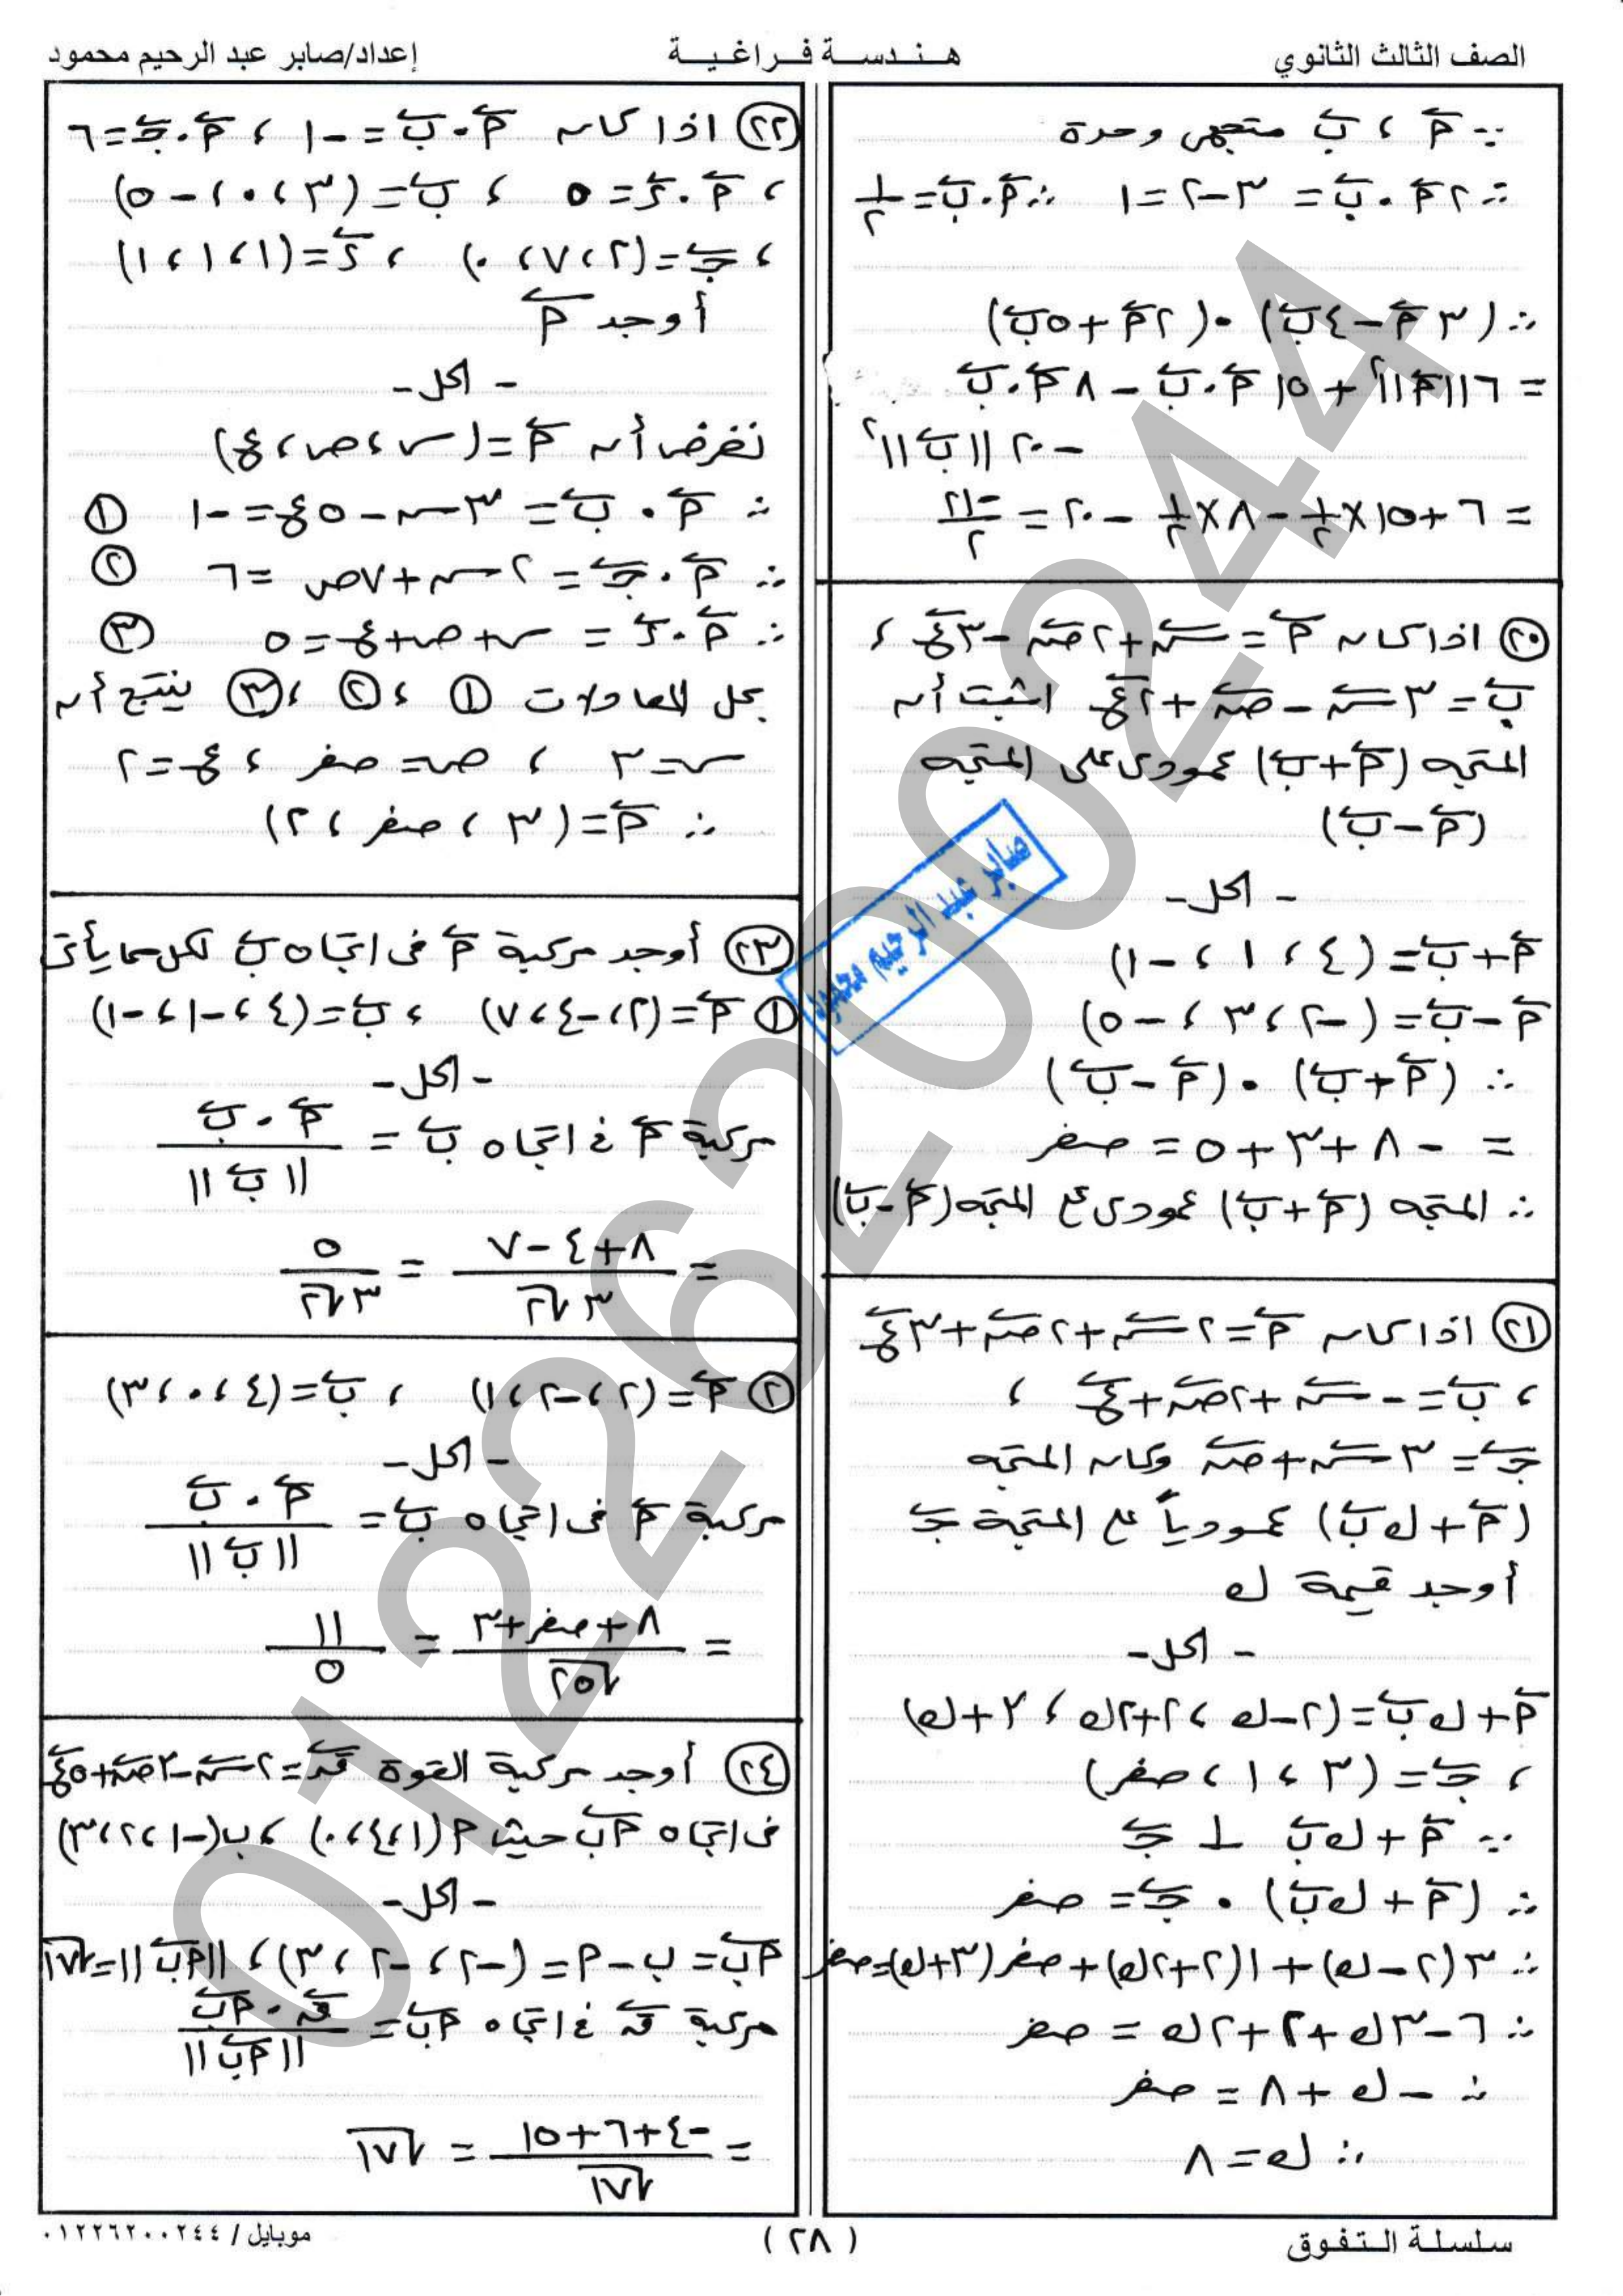 الصف الثالث الثانوي
هـنـدسـة فـراغـيـة
إعداد/صابر عبد الرحيم محمود
∵ أَ ، بَ متجهى وحدة
∴ ٢ أَ . بَ = ٣-٢ = ١ ∴ أَ . بَ = ١/٢
∴ (٣ أَ - ٤ بَ) . (٢ أَ + ٥ بَ)
= ٦ ||أَ||² + ١٥ أَ . بَ - ٨ أَ . بَ
- ٢٠ ||بَ||²
= ٦ + ١٥ × ١/٢ - ٨ × ١/٢ - ٢٠ = -٢١/٢
(٢٠) اذا كان أَ = سَ + ٢ صَ - ٣ عَ ،
بَ = ٣ سَ - صَ + ٢ عَ اثبت أن
المتجه (أَ + بَ) عمودى على المتجه
(أَ - بَ)
- الحل -
أَ + بَ = (٤ ، ١ ، -١)
أَ - بَ = (-٢ ، ٣ ، -٥)
∴ (أَ + بَ) . (أَ - بَ)
= -٨ + ٣ + ٥ = صفر
∴ المتجه (أَ + بَ) عمودى على المتجه (أَ - بَ)
(٢١) اذا كان أَ = ٢ سَ + ٢ صَ + ٣ عَ
، بَ = - سَ + ٢ صَ + عَ ،
جَ = ٣ سَ + صَ وكان المتجه
(أَ + ك بَ) عمودياً على المتجه جَ
أوجد قيمة ك
- الحل -
أَ + ك بَ = (٢-ك ، ٢+٢ك ، ٣+ك)
، جَ = (٣ ، ١ ، صفر)
∵ أَ + ك بَ ⊥ جَ
∴ (أَ + ك بَ) . جَ = صفر
∴ ٣(٢-ك) + ١(٢+٢ك) + صفر(٣+ك) = صفر
∴ ٦ - ٣ك + ٢ + ٢ك = صفر
∴ -ك + ٨ = صفر
∴ ك = ٨
(٢٢) اذا كان أَ . بَ = -١ ، أَ . جَ = ٦
، أَ . ءَ = ٥ ، بَ = (٣ ، ٠ ، -٥)
، جَ = (٢ ، ٧ ، ٠) ، ءَ = (١ ، ١ ، ١)
أوجد أَ
- الحل -
نفرض أن أَ = (س ، ص ، ع)
∴ أَ . بَ = ٣س - ٥ع = -١ (١)
∴ أَ . جَ = ٢س + ٧ص = ٦ (٢)
∴ أَ . ءَ = س + ص + ع = ٥ (٣)
بحل المعادلات (١) ، (٢) ، (٣) ينتج أن
س = ٣ ، ص = صفر ، ع = ٢
∴ أَ = (٣ ، صفر ، ٢)
(٢٣) أوجد مركبة أَ فى اتجاه بَ لكل مما يأتى
(١) أَ = (٢ ، -٤ ، ٧) ، بَ = (٤ ، -١ ، -١)
- الحل -
مركبة أَ فى اتجاه بَ = أَ . بَ / ||بَ||
= (٨ + ٤ - ٧) / ٣√٢ = ٥ / ٣√٢
(٢) أَ = (٢ ، -٢ ، ١) ، بَ = (٤ ، ٠ ، ٣)
- الحل -
مركبة أَ فى اتجاه بَ = أَ . بَ / ||بَ||
= (٨ + صفر + ٣) / √٢٥ = ١١ / ٥
(٢٤) أوجد مركبة القوة قَ = ٢ سَ - ٣ صَ + ٥ عَ
فى اتجاه أبَ حيث أ (١ ، ٤ ، ٠) ، ب (-١ ، ٢ ، ٣)
- الحل -
أبَ = ب - أ = (-٢ ، -٢ ، ٣) ، ||أبَ|| = √١٧
مركبة قَ فى اتجاه أبَ = قَ . أبَ / ||أبَ||
= (-٤ + ٦ + ١٥) / √١٧ = √١٧
صابر عبد الرحيم محمود
01226200244
سلسلة التفوق
( ٢٨ )
موبايل / ٠١٢٢٦٢٠٠٢٤٤